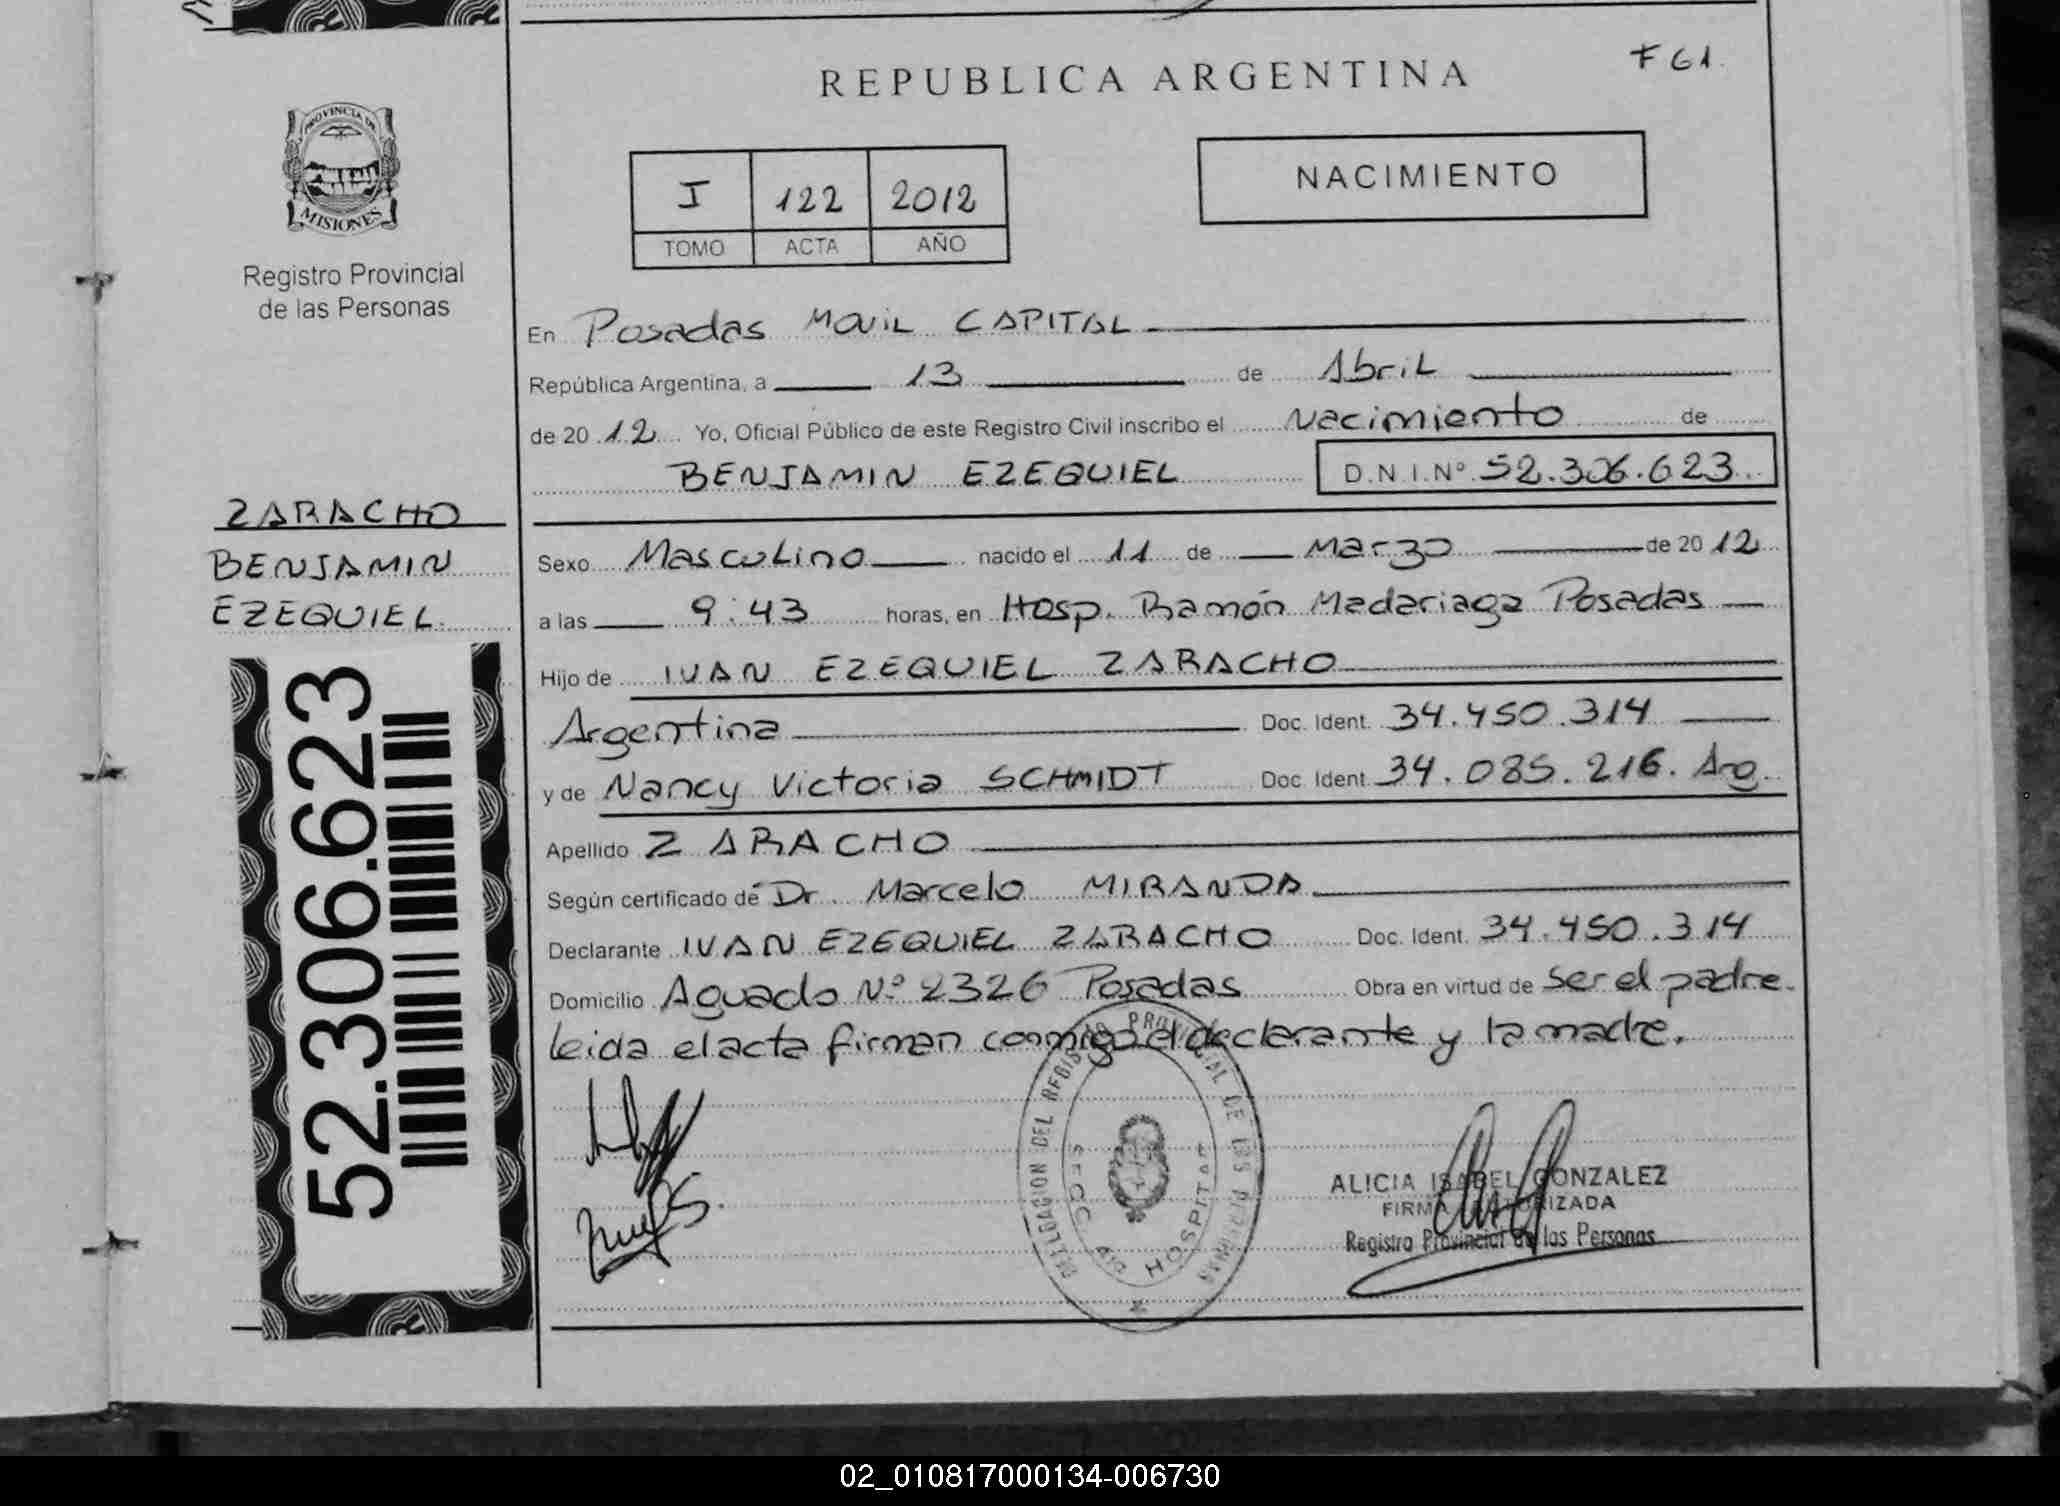 F 61.
REPUBLICA ARGENTINA
PROVINCIA DE
MISIONES
Registro Provincial
de las Personas
I 122 2012
TOMO ACTA AÑO
NACIMIENTO
En Posadas Movil CAPITAL
República Argentina, a 13 de Abril
de 2012 Yo, Oficial Público de este Registro Civil inscribo el Nacimiento de
BENJAMIN EZEQUIEL D.N.I.Nº 52.306.623
ZARACHO
BENJAMIN
EZEQUIEL
Sexo Masculino nacido el 11 de Marzo de 2012
a las 9:43 horas, en Hosp. Ramón Madariaga Posadas
Hijo de IVAN EZEQUIEL ZARACHO
Argentina Doc. Ident. 34.450.314
y de Nancy Victoria SCHMIDT Doc. Ident. 34.085.216. Arg.
Apellido ZARACHO
Según certificado de Dr. Marcelo MIRANDA
Declarante IVAN EZEQUIEL ZARACHO Doc. Ident. 34.450.314
Domicilio Aguado Nº 2326 Posadas Obra en virtud de ser el padre.
leida el acta firman conmigo el declarante y la madre.
52.306.623
DELEGACION DEL REGISTRO PROVINCIAL DE LAS PERSONAS
HOSPITAL
ALICIA ISABEL GONZALEZ
FIRMA AUTORIZADA
Registro Provincial de las Personas
02_010817000134-006730